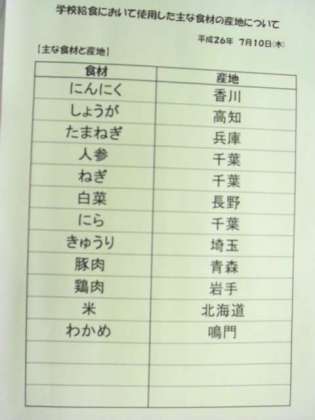 学校給食において使用した主な食材の産地について
平成26年 7月10日(木)
【主な食材と産地】
食材 産地
にんにく 香川
しょうが 高知
たまねぎ 兵庫
人参 千葉
ねぎ 千葉
白菜 長野
にら 千葉
きゅうり 埼玉
豚肉 青森
鶏肉 岩手
米 北海道
わかめ 鳴門